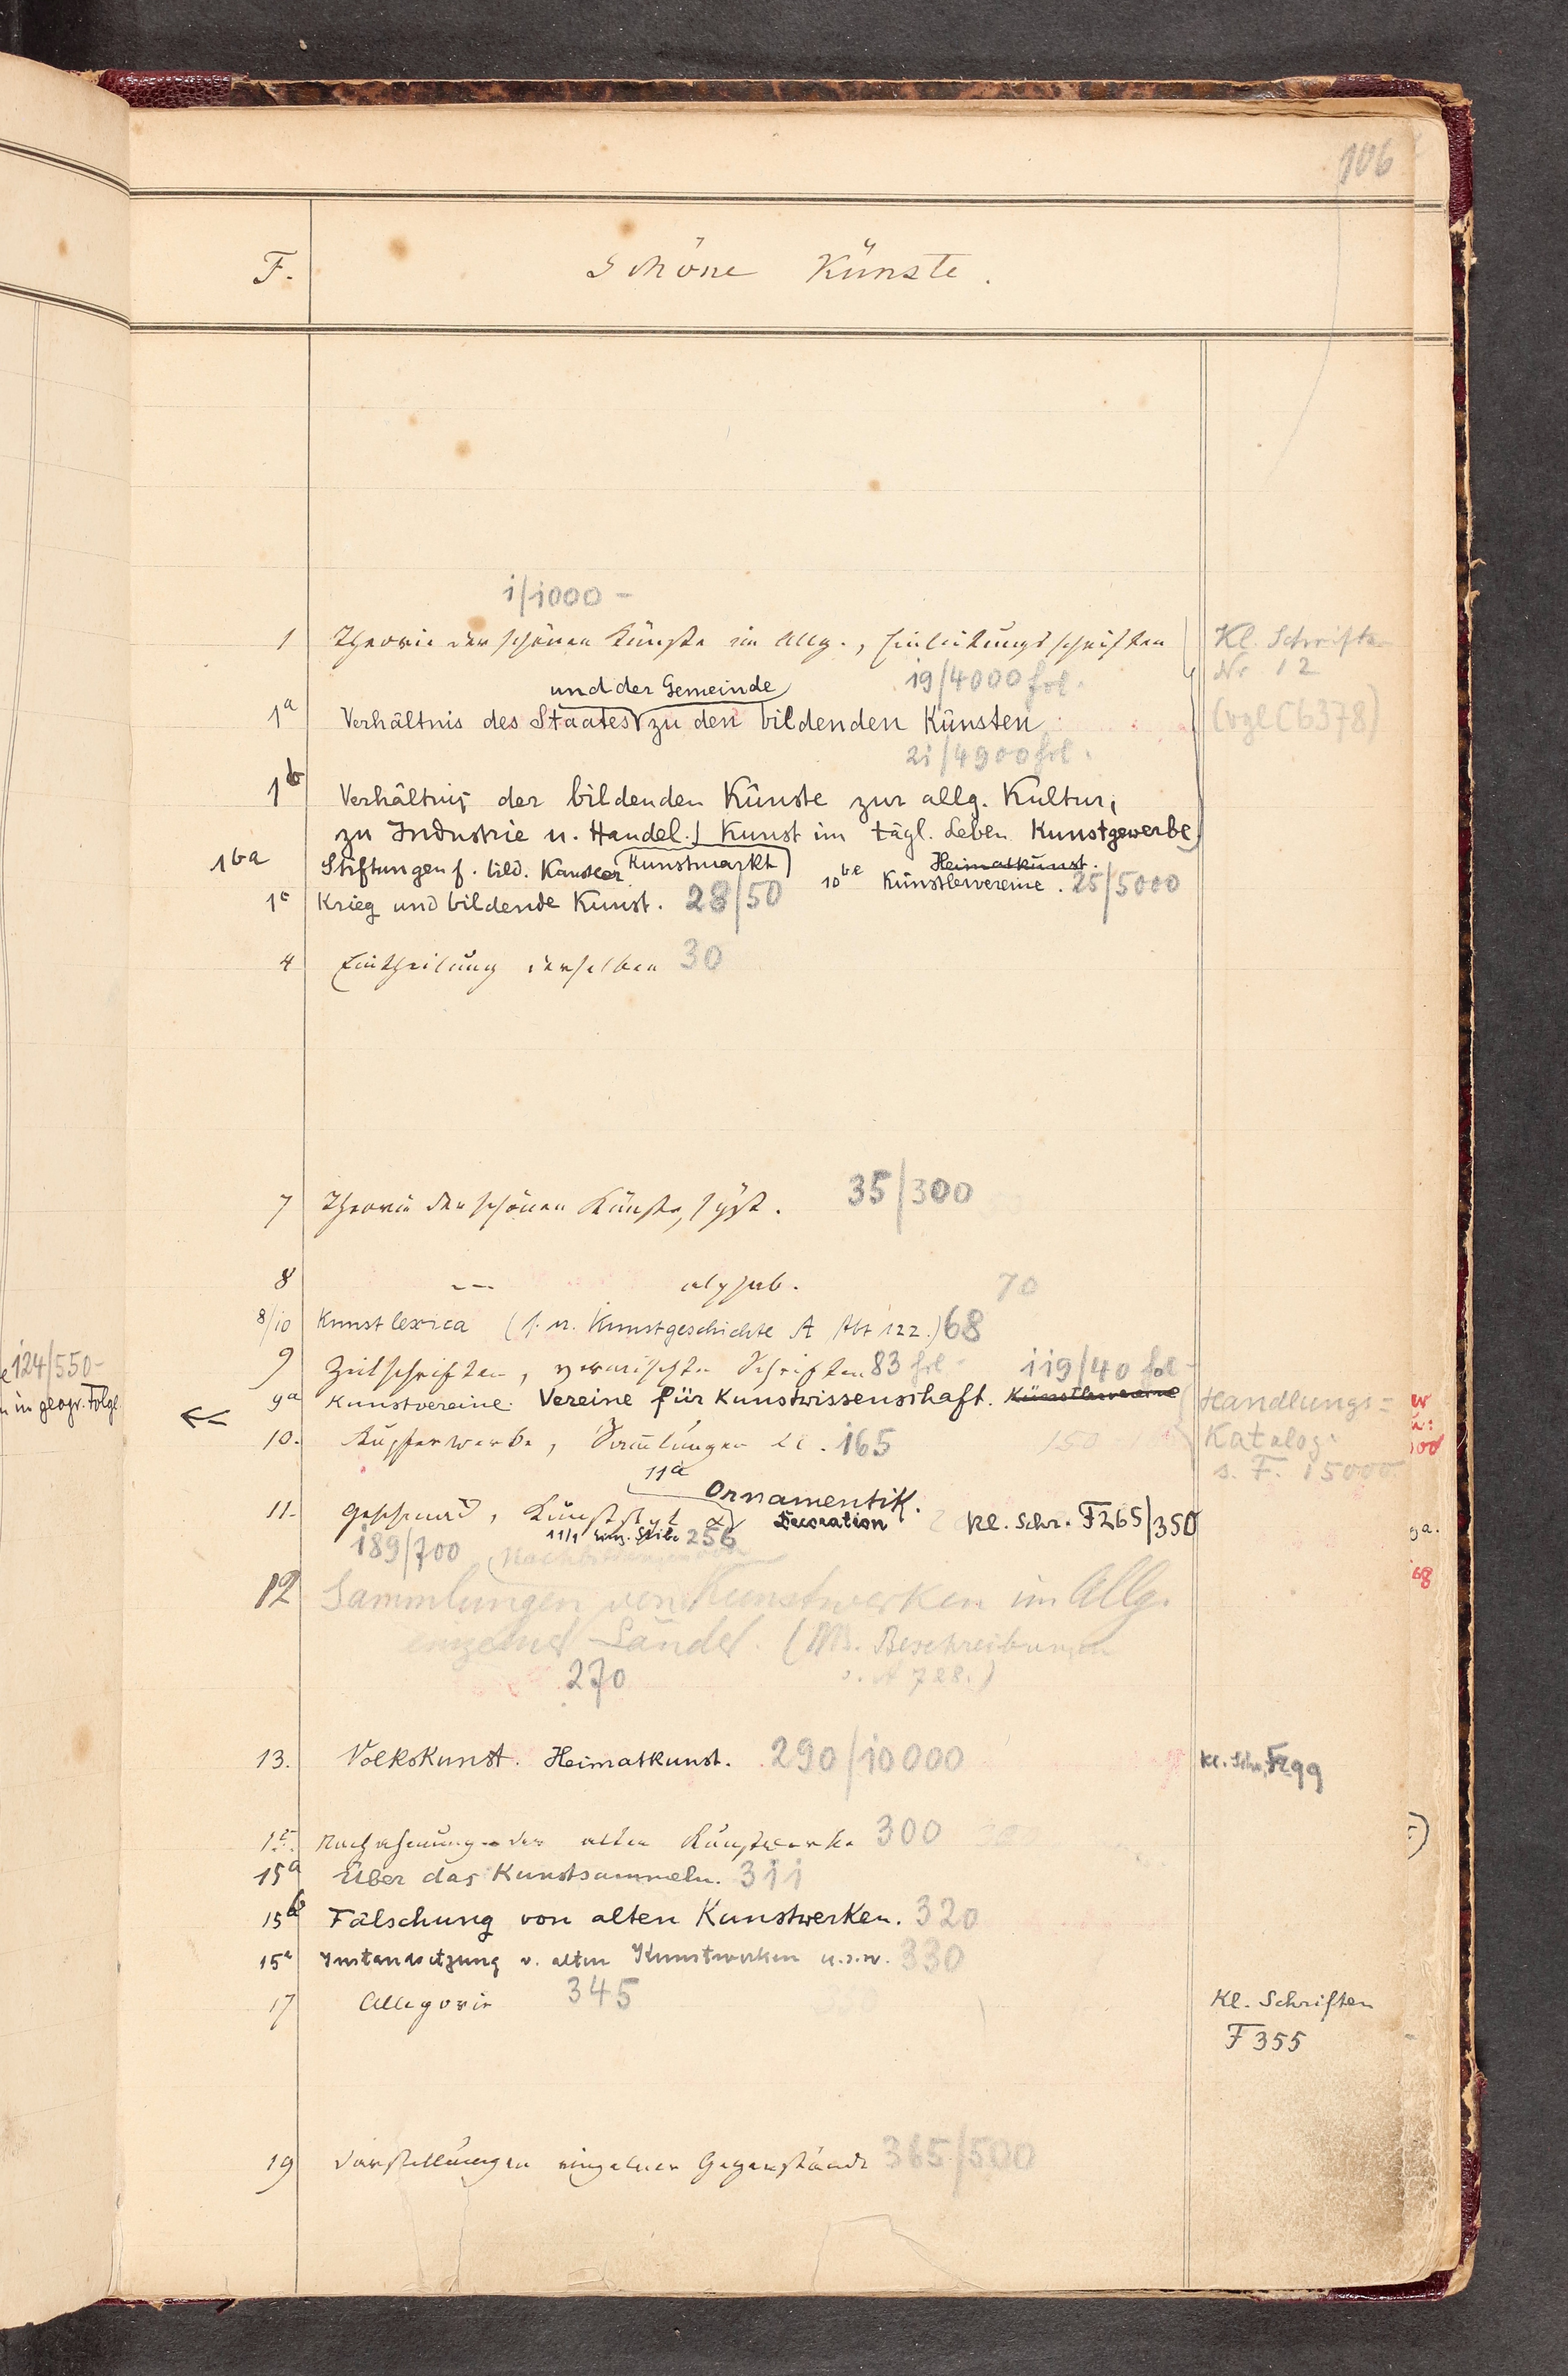 106
F. Schöne Künste.
1/1000 –
1 Theorie der schönen Künste im Allg., Einleitungsschriften
Kl. Schriften
Nr. 12
19/4000 fol.
und der Gemeinde
1a Verhältnis des Staates zu den bildenden Künsten
(vgl C6378)
21/4900 fol.
1b Verhältnis der bildenden Künste zur allg. Kultur,
zu Industrie u. Handel. Kunst im tägl. Leben Kunstgewerbe
Kunstmarkt Heimatkunst.
1ba Stiftungen f. bild. Künstler 1bc Künstlervereine. 25/5000
1c Krieg und bildende Kunst. 28/50
4 Eintheilung derselben 30
7 Theorie der schönen Künste, syst. 35/300
8 –– alphab. 70
8/10 Kunstlexica (s. u. Kunstgeschichte A Abt 122.) 68
9 Zeitschriften, vermischte Schriften 83 fol 119/40 fol
9a Kunstvereine. Vereine für Kunstwissenschaft. Künstlervereine
Handlungs=
Katalog.
s. F. 15000.
10. Kupferwerke, Sammlungen etc. 165 150
11a Ornamentik.
11. Geschmack, Kunststyl Decoration Kl. Schr. F265/350
11/1 einz. Stile 256
189/700
12 Sammlungen von Kunstwerken im Allg.
einzelner Länder. (Ms. Beschreibungen
s. A 728.)
270
13. Volkskunst. Heimatkunst. 290/10000
Kl. Schr. F299
15. Nachahmung der alten Kunstwerke 300
15a Über das Kunstsammeln. 311
15b Fälschung von alten Kunstwerken. 320
15c Instandsetzung v. alten Kunstwerken u.s.w. 330
17 Allegorie 345
Kl. Schriften
F 355
19 Darstellungen einzelner Gegenstände 365/500
124/550–
in geogr. Folge